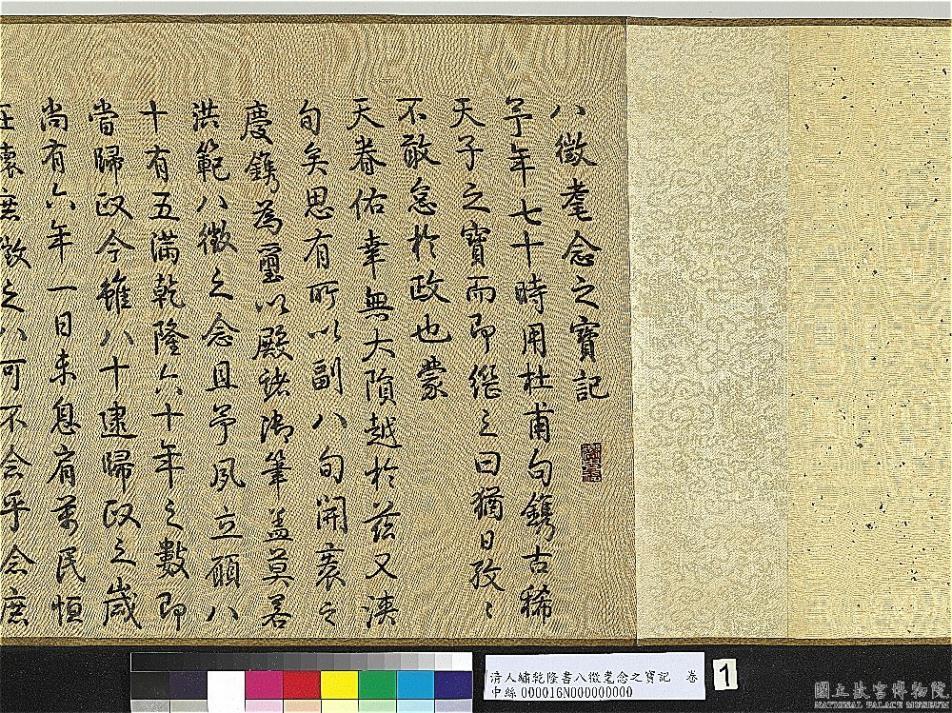 八徵耄念之寶記
予年七十時用杜甫句鐫古稀
天子之寶而即繼之曰猶日孜〻
不敢怠於政也蒙
天眷佑幸無大隕越於茲又浹
旬矣思有所以副八旬開袠之
慶鐫為璽以殿諸御筆蓋莫若
洪範八徵之念且予夙立願八
十有五滿乾隆六十年之數即
當歸政今雖八十逮歸政之歲
尚有六年一日未息肩萬民恒
在懷庶徵之八可不念乎念庶
清人繡乾隆書八徵耄念之寶記 卷
中絲 000016N000000000
1
國立故宮博物院
NATIONAL PALACE MUSEUM